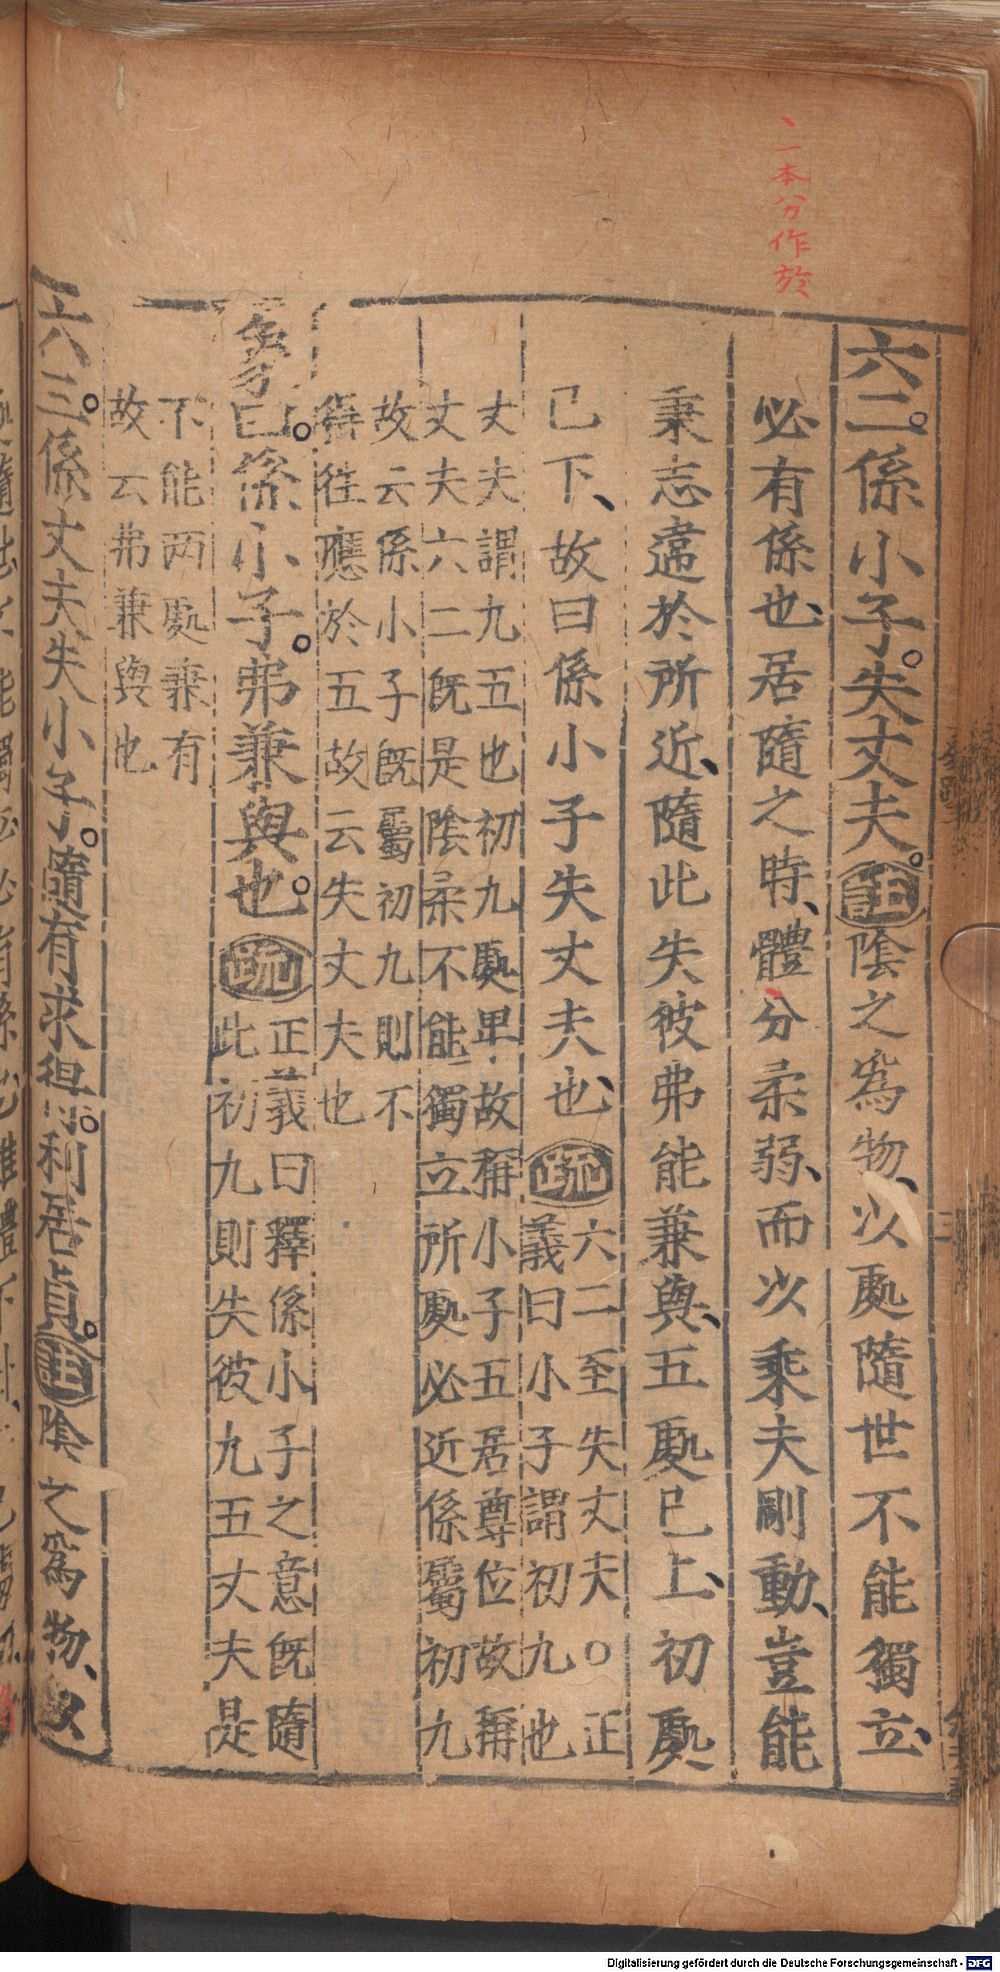 一本分作於
六二。係小子。失丈夫。註陰之爲物、以處隨世不能獨立、
必有係也、居隨之時、體分柔弱、而以乘夫剛動、豈能
秉志違於所近、隨此失彼弗能兼與、五處已上、初處
已下、故曰係小子失丈夫也、疏六二至失丈夫○正
義曰小子謂初九也
丈夫謂九五也初九處卑故稱小子五居尊位故稱
丈夫六二旣是陰柔不能獨立所處必近係屬初九
故云係小子旣屬初九則不
得往應於五故云失丈夫也
象曰。係小子。弗兼與也。疏正義曰釋係小子之意旣隨
此初九則失彼九五丈夫是
不能两處兼有
故云弗兼與也
六三。係丈夫失小子。隨有求得。利居貞。註陰之爲物、以
Digitalisierung gefördert durch die Deutsche Forschungsgemeinschaft - DFG